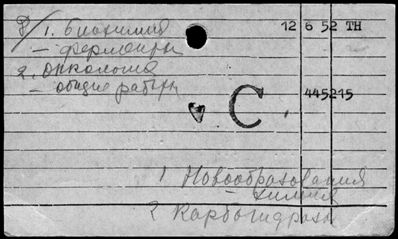 P/1. Биохимия
12 6 52 TH
— ферменты
2. Онкология
— общие работы
C
445215
1 Новообразования
— химия
2 Карбогидразы